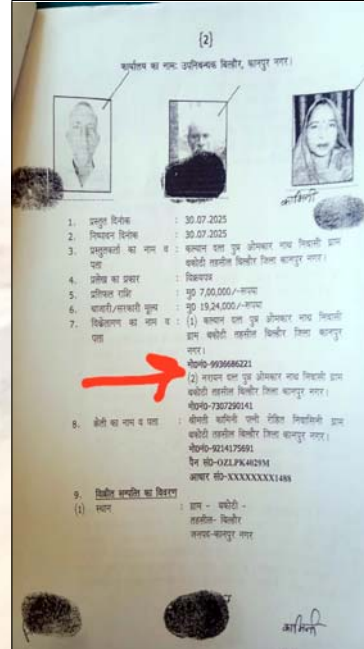 {2}
कार्यालय का नाम: उपनिबन्धक बिल्हौर, कानपुर नगर।
कामिनी
1. प्रस्तुत दिनांक : 30.07.2025
2. निष्पादन दिनांक : 30.07.2025
3. प्रस्तुतकर्ता का नाम व पता : कल्यान दत्त पुत्र ओमकार नाथ निवासी ग्राम
बकोठी तहसील बिल्हौर जिला कानपुर नगर।
4. प्रलेख का प्रकार : विक्रयपत्र
5. प्रतिफल राशि : मु0 7,00,000/-रूपया
6. बाजारी/सरकारी मूल्य : मु0 19,24,000/-रूपया
7. विक्रेतागण का नाम व पता : (1) कल्यान दत्त पुत्र ओमकार नाथ निवासी
ग्राम बकोठी तहसील बिल्हौर जिला कानपुर
नगर।
मो0नं0-9936686221
(2) नरायन दत्त पुत्र ओमकार नाथ निवासी ग्राम
बकोठी तहसील बिल्हौर जिला कानपुर नगर।
मो0नं0-7307290141
8. क्रेती का नाम व पता : श्रीमती कामिनी पत्नी रोहित निवासिनी ग्राम
बकोठी तहसील बिल्हौर जिला कानपुर नगर।
मो0नं0-9214175691
पैन सं0-OZLPK4029M
आधार सं0-XXXXXXXX1488
9. विक्रीत सम्पत्ति का विवरण
(1) स्थान : ग्राम - बकोठी -
तहसील- बिल्हौर
जनपद-कानपुर नगर
कामिनी